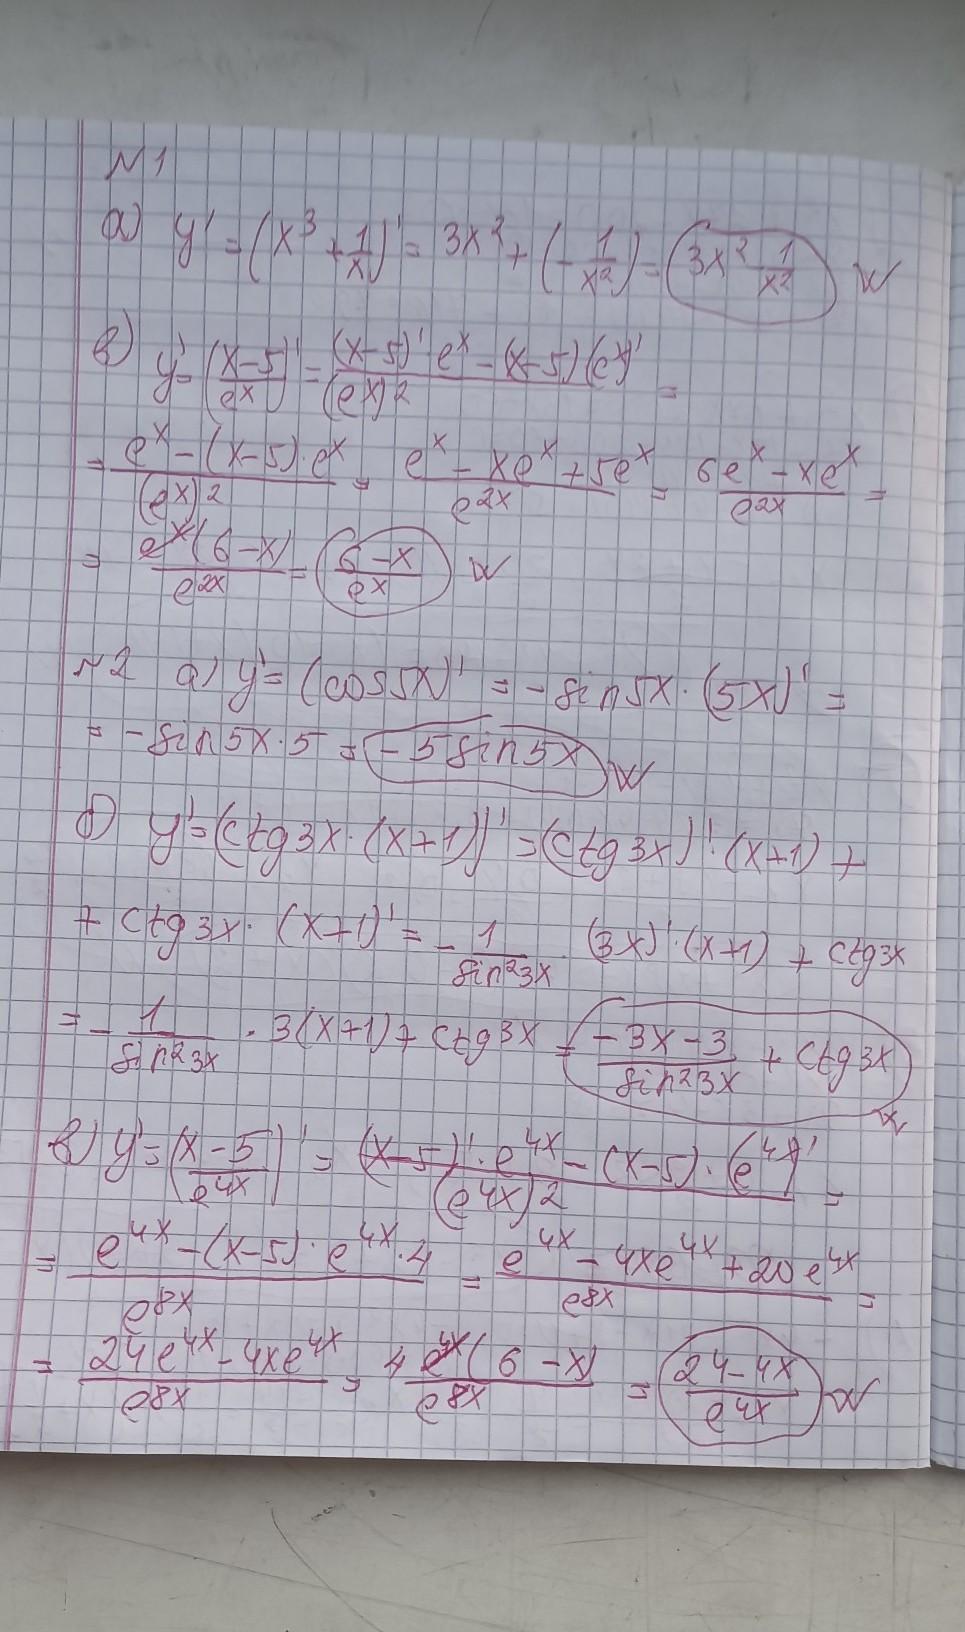 №1
а) y' = (x³ + 1/x)' = 3x² + (-1/x²) = 3x² - 1/x²
в) y' = ((x-5)/e^x)' = ((x-5)'·e^x - (x-5)(e^x)')/(e^x)² =
= (e^x - (x-5)·e^x)/(e^x)² = (e^x - xe^x + 5e^x)/e^2x = (6e^x - xe^x)/e^2x =
= e^x(6-x)/e^2x = (6-x)/e^x
№2 а) y' = (cos5x)' = -sin5x·(5x)' =
= -sin5x·5 = -5sin5x
б) y' = (ctg3x·(x+1))' = (ctg3x)'·(x+1) +
+ ctg3x·(x+1)' = -1/sin²3x · (3x)'·(x+1) + ctg3x
= -1/sin²3x · 3(x+1) + ctg3x = (-3x-3)/sin²3x + ctg3x
в) y' = ((x-5)/e^4x)' = ((x-5)'·e^4x - (x-5)·(e^4x)')/(e^4x)² =
= (e^4x - (x-5)·e^4x·4)/e^8x = (e^4x - 4xe^4x + 20e^4x)/e^8x =
= (24e^4x - 4xe^4x)/e^8x = 4e^4x(6-x)/e^8x = (24-4x)/e^4x